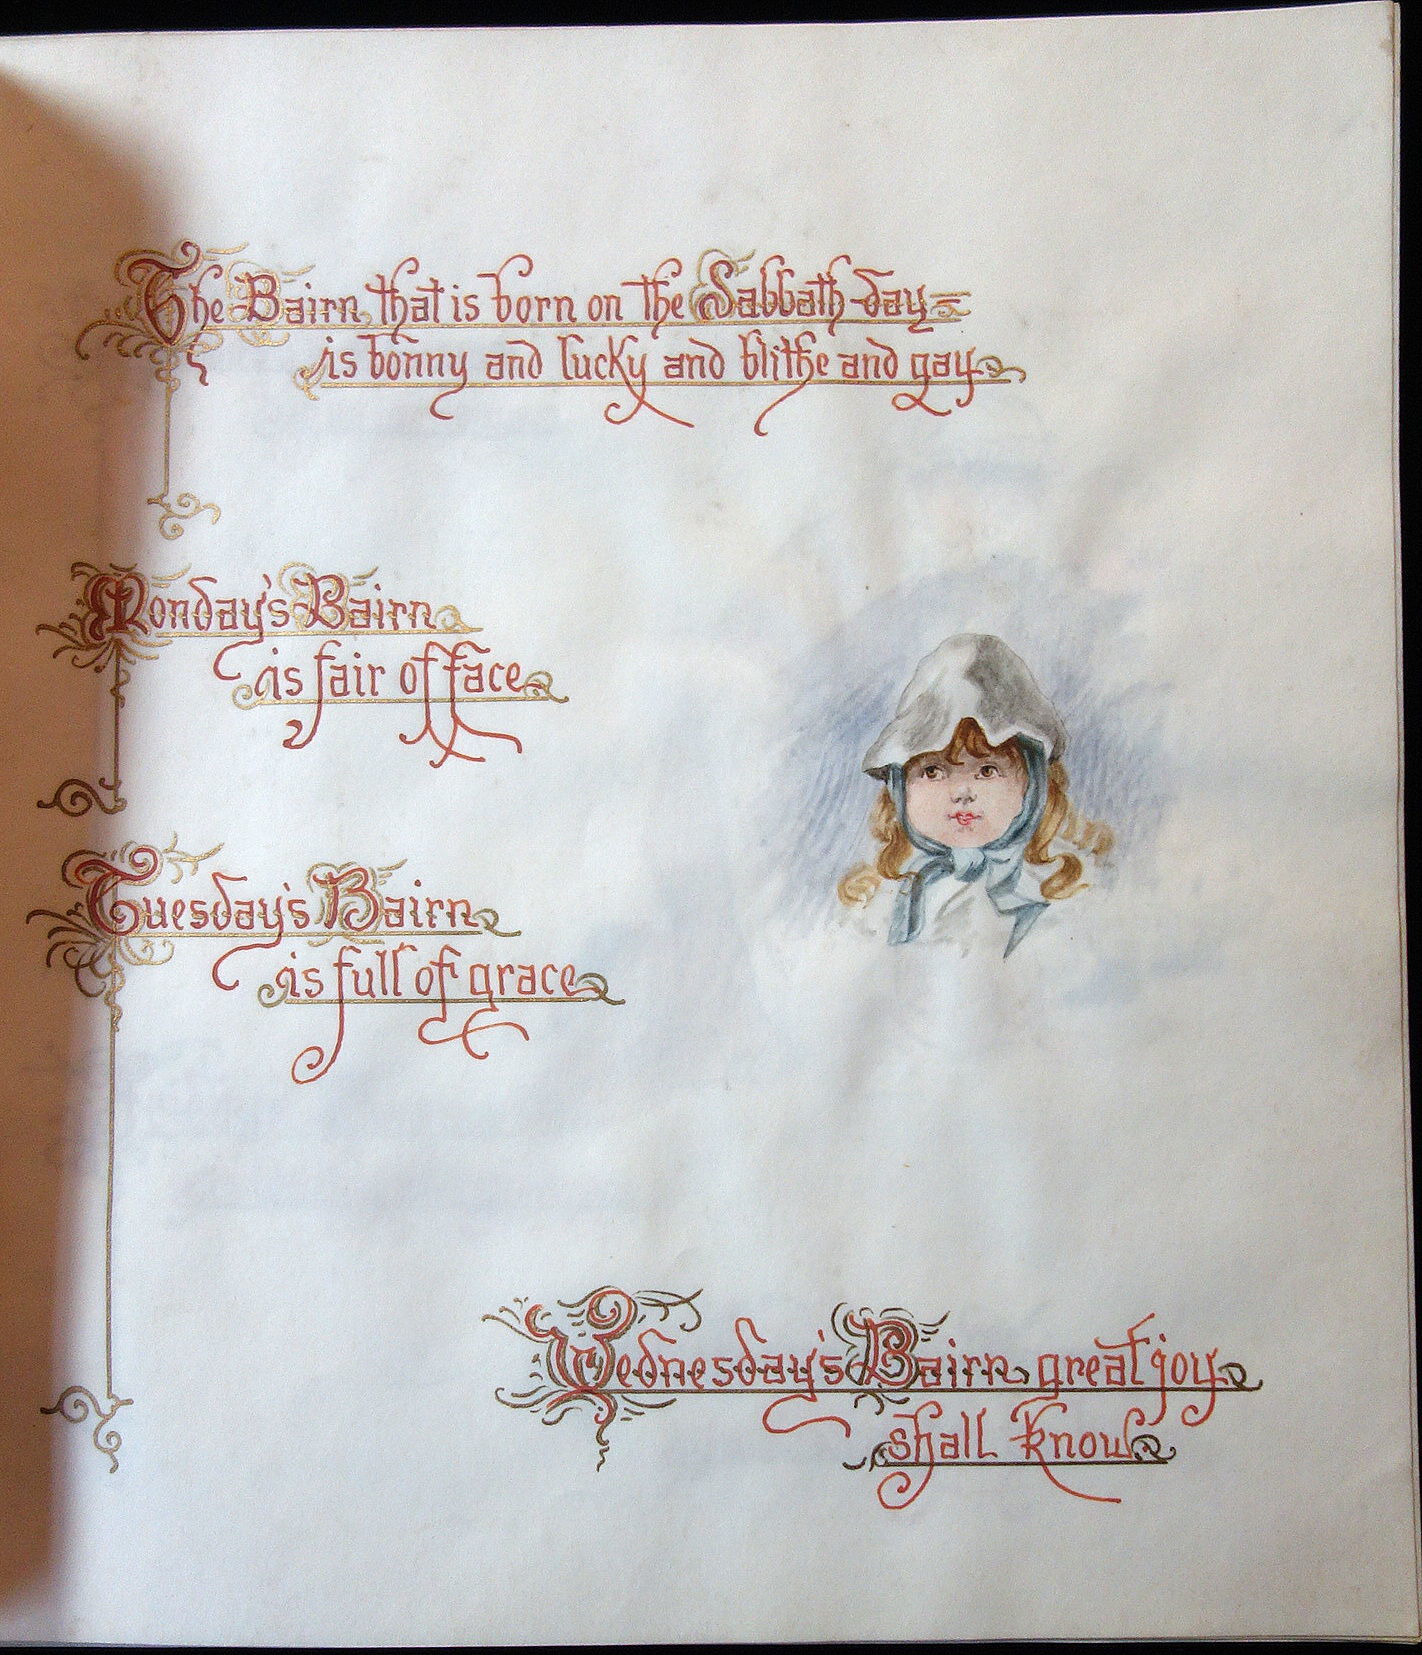 The Bairn that is born on the Sabbath day
is bonny and lucky and blithe and gay
Monday's Bairn
is fair of face
Tuesday's Bairn
is full of grace
Wednesday's Bairn great joy
shall know